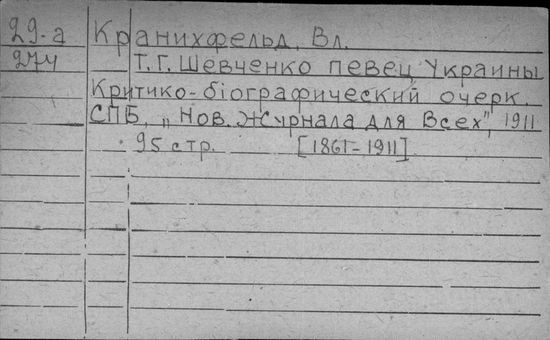 29-а Кранихфельд, Вл.
274 Т.Г. Шевченко певец Украины
Критико-біографический очерк.
СПБ, „Нов. Журнала для Всех", 1911
95 стр. [1861-1911]